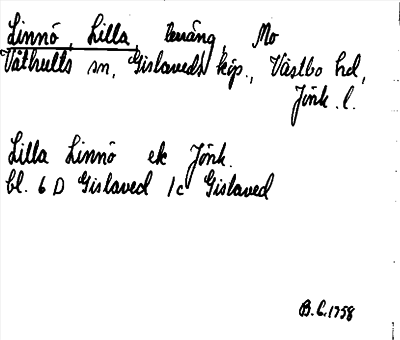 Linnö, Lilla, terräng, Mo
Våthults sn, Gislaveds köp., Västbo hd,
Jönk. l.
Lilla Linnö ek Jönk.
bl. 6 D Gislaved 1c Gislaved
B.C. 1758